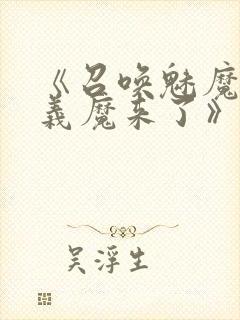 《召唤魅魔
義魔来了》
吴浮生